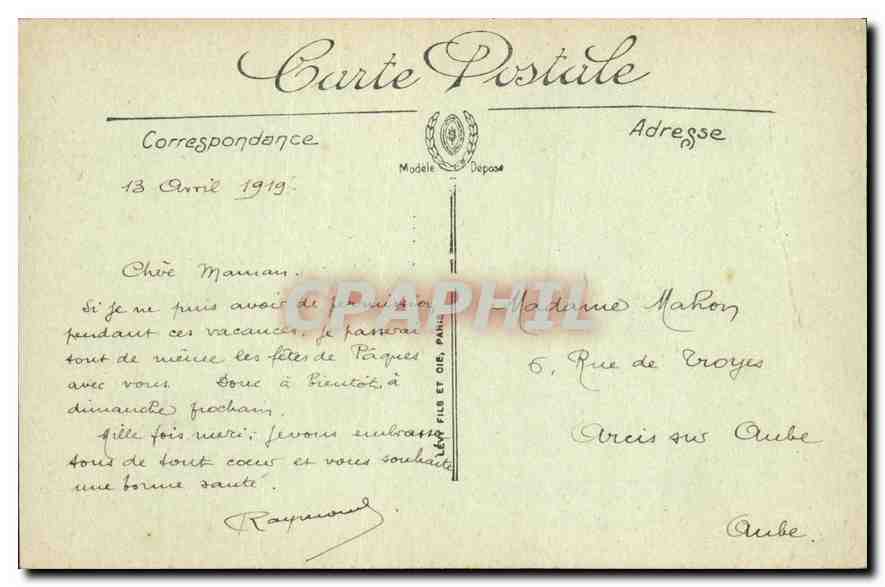 Carte Postale
Correspondance
Adresse
Modèle Déposé
13 Avril 1919.
Chère Maman.
Si je ne puis avoir de permission
pendant ces vacances, je passerai
tout de même les fêtes de Pâques
avec vous. Donc à bientôt, à
dimanche prochain.
Mille fois merci; je vous embrasse
tous de tout coeur et vous souhaite
une bonne santé.
Raymond
LÉVY FILS ET CIE, PARIS
Madame Mahon
6, Rue de Troyes
Arcis sur Aube
Aube.
CPAPHIL